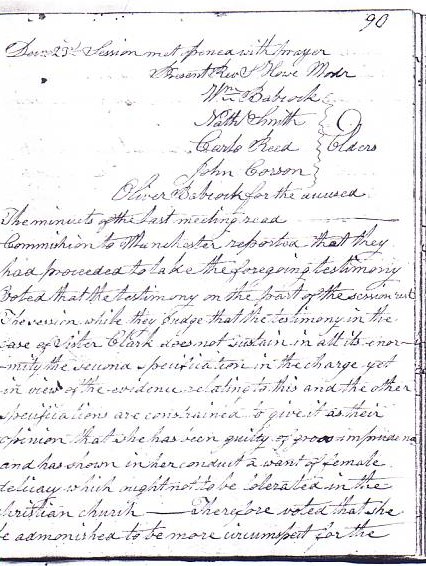 90
Dec. 23d Session met opened with prayer
Present Rev S Howe Modr
Wm Babcock
Nath Smith
Curlo Reed
John Corson
Elders
Oliver Babcock for the accused
The minuets of the last meeting read
Commishion to Manchester reported that they
had proceeded to take the foregoing testimony
Voted that the testimony on the part of the session rest
The session while they judge that the testimony in the
case of Sister Clark does not sustain in all its enor-
mity the second specification in the charge yet
in view of the evidence relating to this and the other
specifications are constrained to give it as their
opinion that she has been guilty of gross imprudence
and has shown in her conduct a want of female
delicacy which might not to be tolerated in the
christian church — Therefore voted that she
be admonished to be more circumspect for the